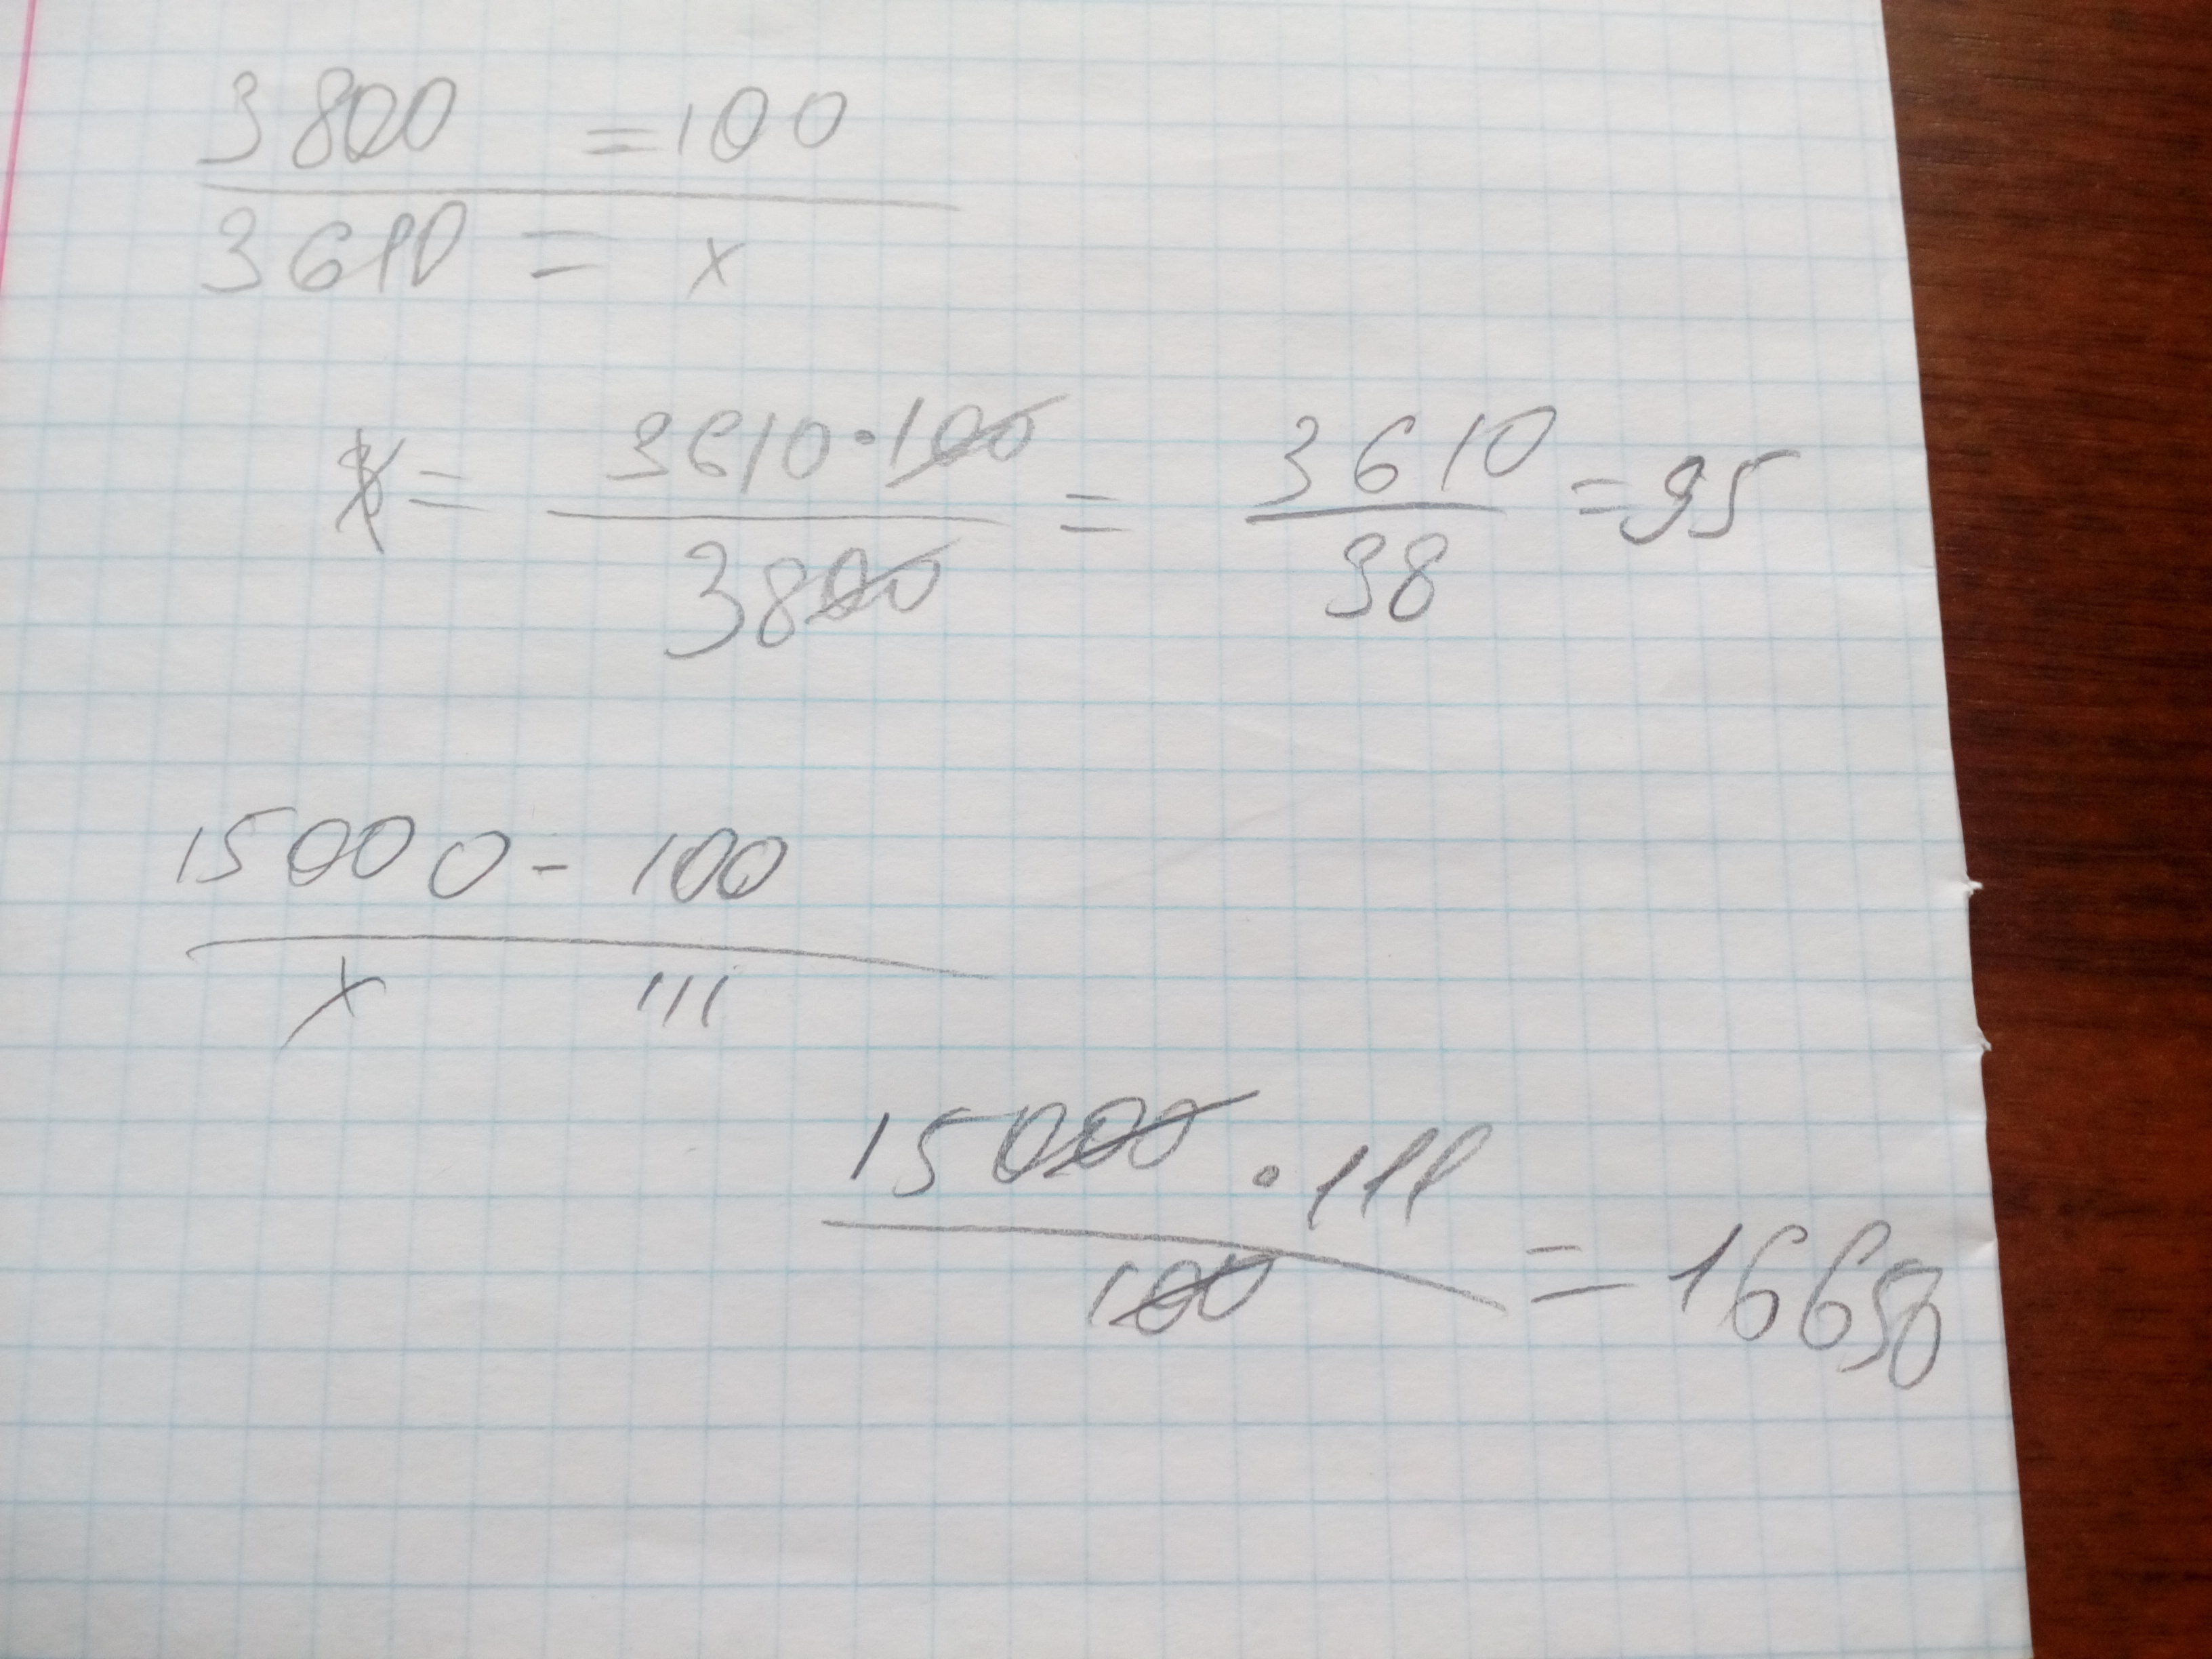 3800 = 100
3610 = x
x = 3610 · 100 / 3800 = 3610 / 38 = 95
15000 - 100
x 111
15000 · 111 / 100 = 16650